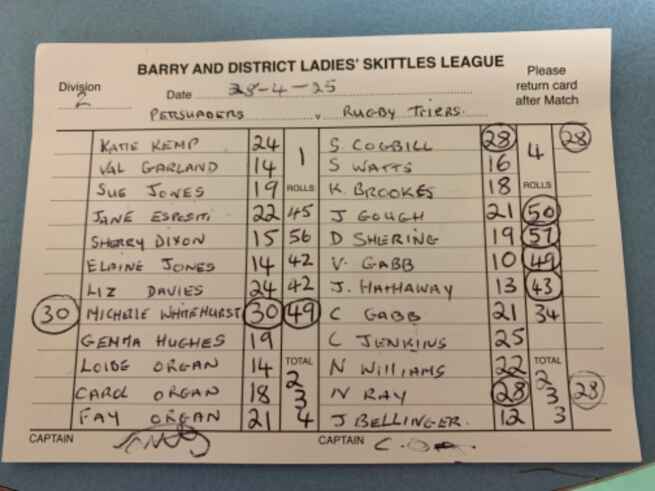 BARRY AND DISTRICT LADIES' SKITTLES LEAGUE
Division 2
Date 28-4-25
Please return card after Match
PERSUADERS v RUGBY TRIERS.
KATIE KEMP 24 1 S. COGBILL 28 4 28
VAL GARLAND 14 S WATTS 16
SUE JONES 19 ROLLS K. BROOKES 18 ROLLS
JANE ESPOSITI 22 45 J GOUGH 21 50
SHERRY DIXON 15 56 D SHERING 19 57
ELAINE JONES 14 42 V. GABB 10 49
LIZ DAVIES 24 42 J. HATHAWAY 13 43
30 MICHELLE WHITEHURST 30 49 C GABB 21 34
GEMMA HUGHES 19 C JENKINS 25
LOIDE ORGAN 14 TOTAL N WILLIAMS 22 TOTAL
CAROL ORGAN 18 234 N RAY 28 233 28
FAY ORGAN 21 J BELLINGER. 12
CAPTAIN CAPTAIN